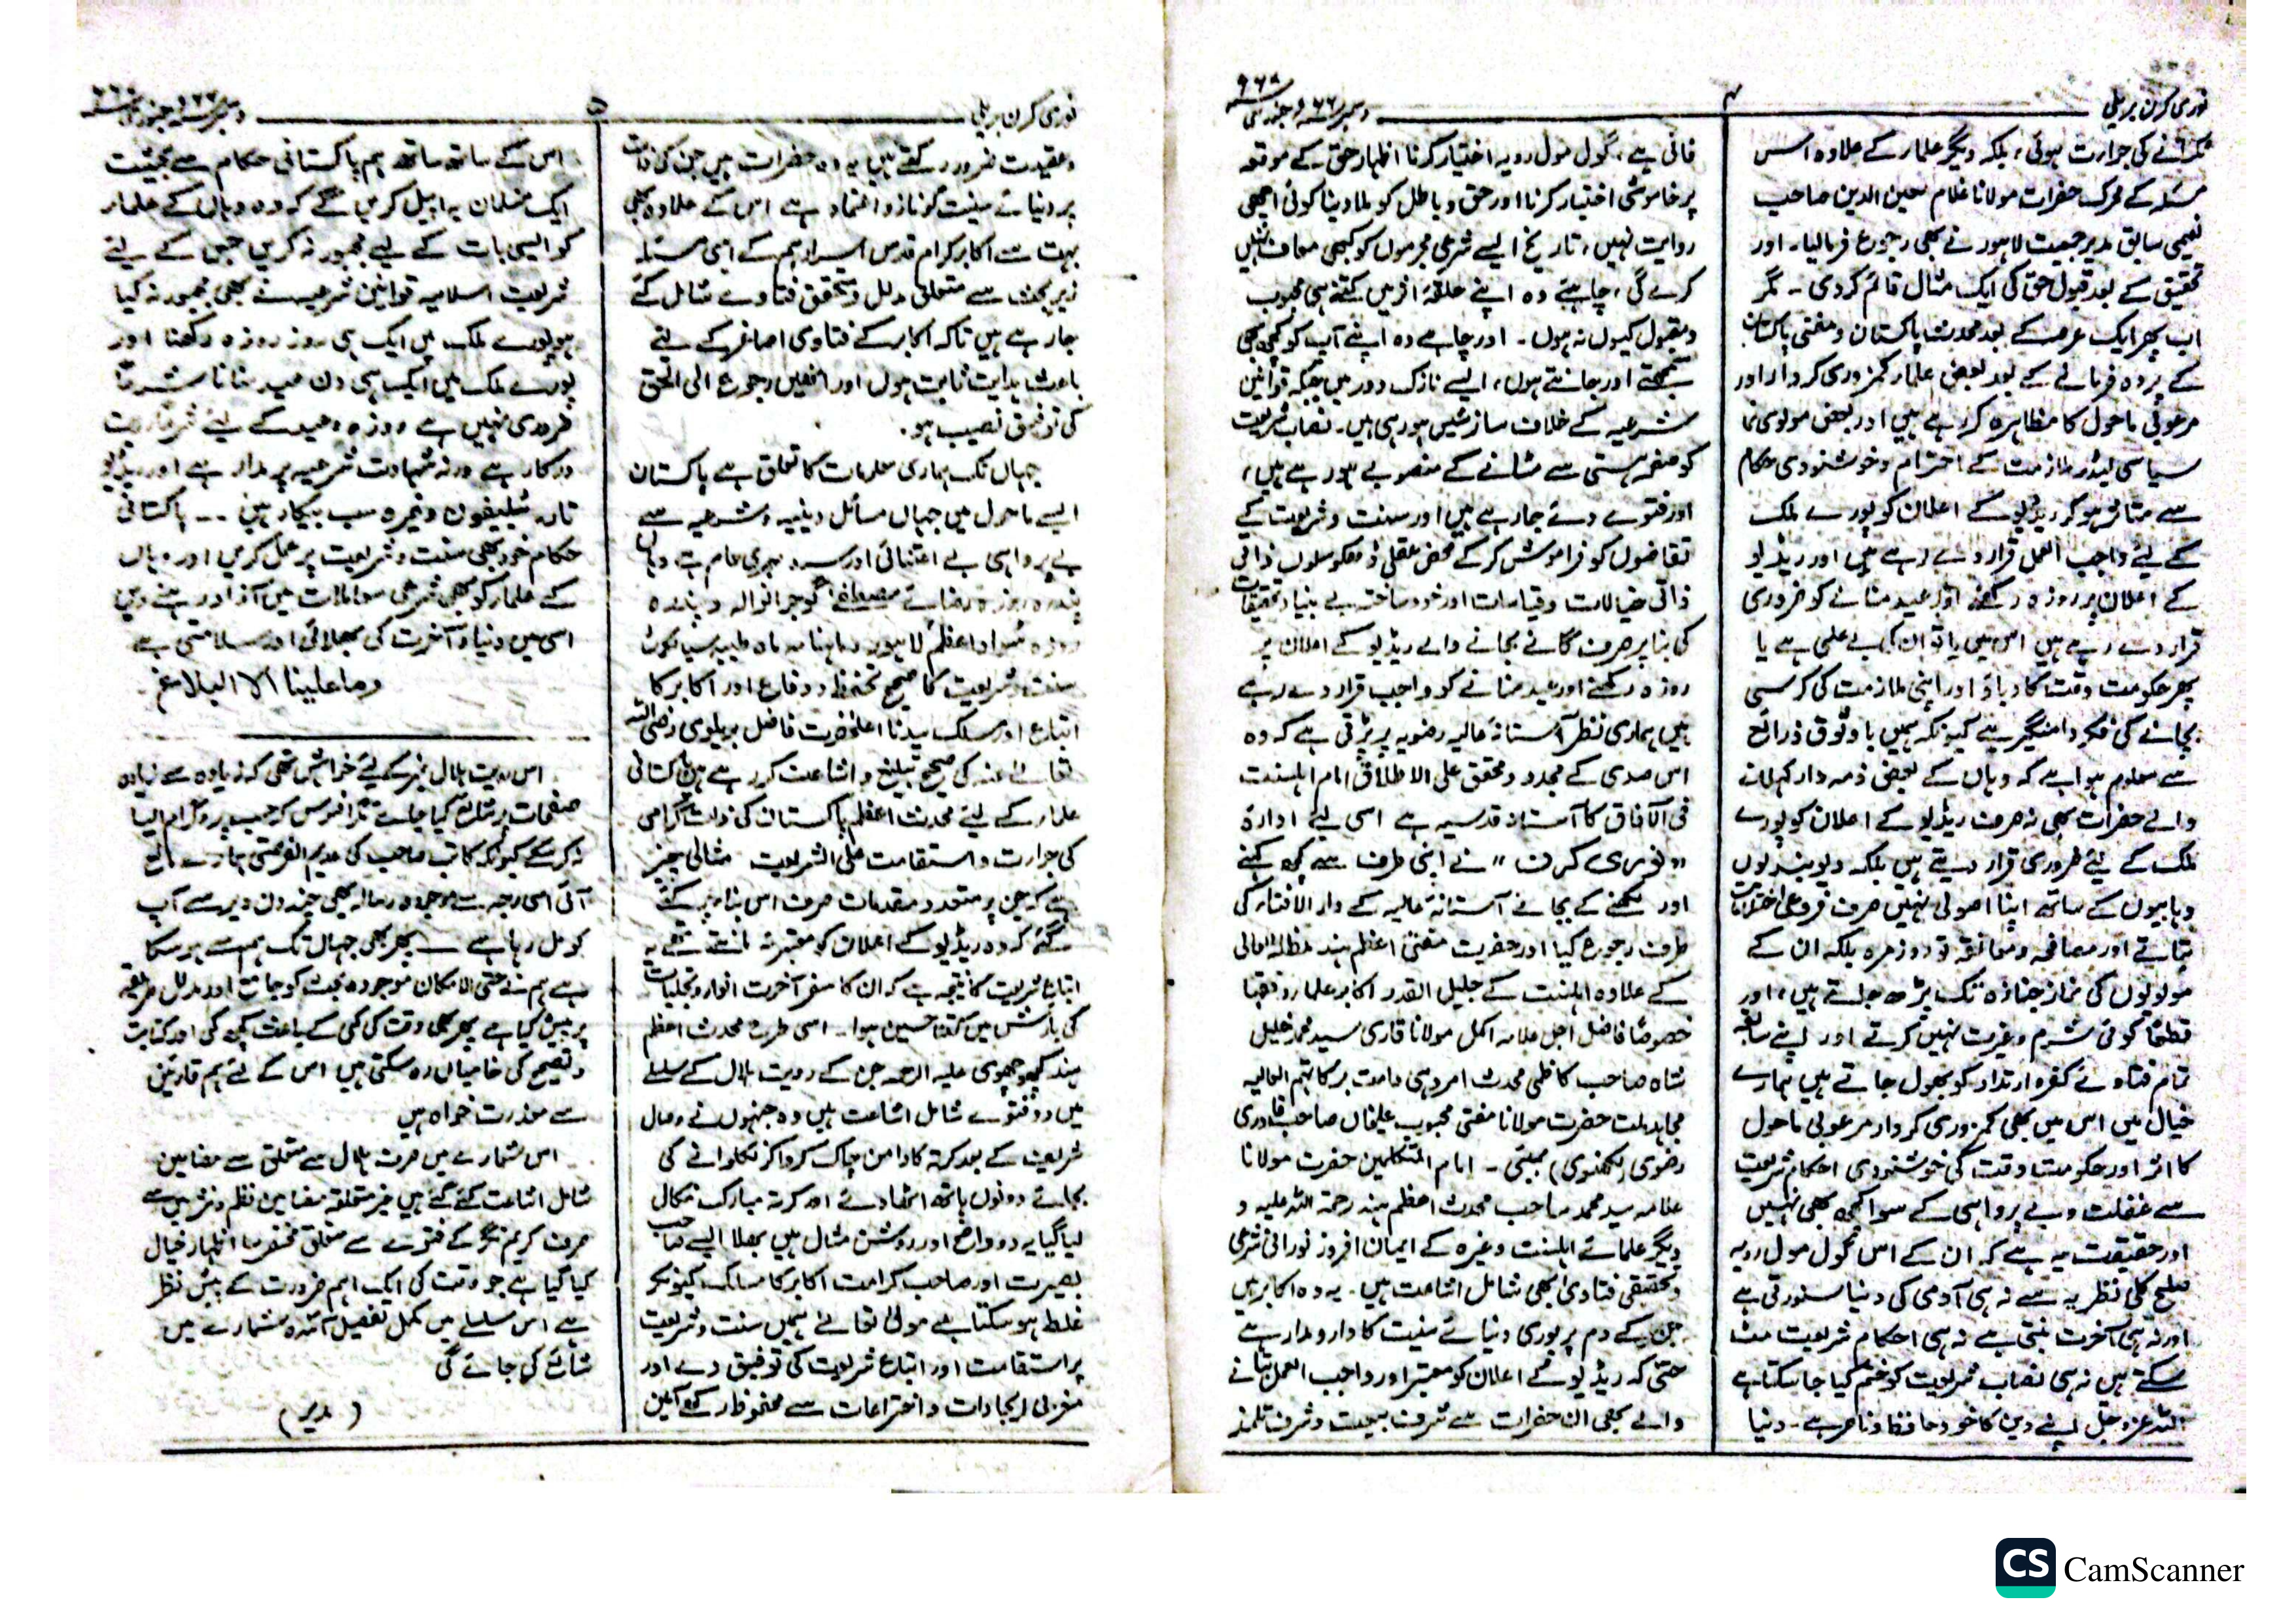 نوری کرن بریلی
۴
دسمبر ۶۶ء و جنوری
کرنے کی جرارت ہوئی، بلکہ دیگر علمار کے علاوہ اسس
مسئلہ کے محرک حضرات مولانا غلام معین الدین صاحب
نعیمی سابق مدیر جمعیت لاہور نے بھی رجوع فرمالیا۔ اور
تحقیق کے بعد قبول حق کی ایک مثال قائم کردی ۔ مگر
اب پھر ایک عرصہ کے بعد محدث پاکستان و مفتی پاکستان
کے پردہ فرمانے کے بعد بعض علمار کمزوری کردار اور
مرعوبی ماحول کا مظاہرہ کررہے ہیں اور بعض مولوی نما
سیاسی لیڈر ملازمت کے احترام و خوشنودی حکام
سے متاثر ہو کر ریڈیو کے اعلان کو پورے ملک
کے لیے واجب العمل قرار دے رہے ہیں اور ریڈیو
کے اعلان پر روزہ رکھنے اور عید منانے کو ضروری
قرار دے رہے ہیں اس میں یا تو ان کی بے علمی ہے یا
پھر حکومت وقت کا دباؤ اور اپنی ملازمت کی کرسی
بچانے کی فکر دامنگیر ہے کیونکہ ہمیں باوثوق ذرائع
سے معلوم ہوا ہے کہ وہاں کے بعض ذمہ دار کہلانے
والے حضرات بھی نہ صرف ریڈیو کے اعلان کو پورے
ملک کے لیے ضروری قرار دیتے ہیں بلکہ دیوبندیوں
وہابیوں کے ساتھ اپنا اصولی نہیں صرف فروعی اختلاف
بتاتے اور مصافحہ و معانقہ تو روزمرہ بلکہ ان کے
مولویوں کی نماز جنازہ تک پڑھ جاتے ہیں، اور
قطعًا کوئی شرم و غیرت نہیں کرتے اور اپنے سابقہ
تمام فتاوے کفر و ارتداد کو بھول جاتے ہیں ہمارے
خیال میں اس میں بھی کمزوری کردار مرعوبی ماحول
کا اثر اور حکومت وقت کی خوشنودی احکام شریعت
سے غفلت و بے پرواہی کے سوا کچھ بھی نہیں
اور حقیقت یہ ہے کہ ان کے اس گول مول رویہ
صلح کلی نظریہ سے نہ ہی آدمی کی دنیا سنورتی ہے
اور نہ ہی آخرت بنتی ہے نہ ہی احکام شریعت مٹ
سکتے ہیں نہ ہی نصاب شریعت کو ختم کیا جاسکتا ہے
اللہ عزوجل اپنے دین کا خود حافظ و ناصر ہے۔ دنیا
فانی ہے، گول مول رویہ اختیار کرنا اظہار حق کے موقعہ
پر خاموشی اختیار کرنا اور حق و باطل کو ملا دینا کوئی اچھی
روایت نہیں، تاریخ ایسے شرعی مجرموں کو کبھی معاف نہیں
کرے گی، چاہئے وہ اپنے حلقۂ اثر میں کتنے ہی محبوب
و مقبول کیوں نہ ہوں۔ اور چاہے وہ اپنے آپ کو کچھ بھی
سمجھتے اور جانتے ہوں، ایسے نازک دور میں جبکہ قوانین
شرعیہ کے خلاف سازشیں ہو رہی ہیں۔ نصاب شریعت
کو صفحہ ہستی سے مٹانے کے منصوبے ہو رہے ہیں،
اور فتوے دئے جارہے ہیں اور سنت و شریعت کے
تقاضوں کو فراموش کرکے محض عقلی ڈھکوسلوں ذاتی
ذاتی خیالات و قیاسات اور خود ساختہ بے بنیاد تحقیقات
کی بنا پر صرف گانے بجانے والے ریڈیو کے اعلان پر
روزہ رکھنے اور عید منانے کو واجب قرار دے رہے
ہیں ہماری نظر آستانۂ عالیہ رضویہ پر پڑتی ہے کہ وہ
اس صدی کے مجدد و محقق علی الاطلاق امام اہلسنت
فی الآفاق کا آستانۂ قدسیہ ہے اسی لیے ادارۂ
،،نوری کرن،، نے اپنی طرف سے کچھ کہنے
اور لکھنے کے بجائے آستانۂ عالیہ کے دار الافتار کی
طرف رجوع کیا اور حضرت مفتی اعظم ہند مدظلہ العالی
کے علاوہ اہلسنت کے جلیل القدر اکابر علمار و فقہا
خصوصًا فاضل اجل علامہ اکمل مولانا قاری سید محمد خلیل
شاہ صاحب کاظمی محدث امروہی دامت برکاتہم العالیہ
مجاہد ملت حضرت مولانا مفتی محبوب علیخاں صاحب قادری
رضوی (لکھنوی) ممبئی ۔ امام المتکلمین حضرت مولانا
علامہ سید محمد صاحب محدث اعظم ہند رحمۃ اللہ علیہ و
دیگر علمائے اہلسنت وغیرہ کے ایمان افروز نورانی شرعی
و تحقیقی فتاوی بھی شامل اشاعت ہیں۔ یہ وہ اکابر ہیں
جن کے دم پر پوری دنیائے سنیت کا دارومدار ہے
حتی کہ ریڈیو کے اعلان کو معتبر اور واجب العمل بتانے
والے بھی ان حضرات سے شرف بیعت و شرف تلمذ
نوری کرن بریلی
۵
دسمبر و جنوری
و عقیدت ضرور رکھتے ہیں یہ وہ حضرات ہیں جن کی ذات
پر دنیائے سنیت کو ناز و اعتماد ہے اس کے علاوہ بھی
بہت سے اکابر کرام قدس اسرارہم کے اسی مسئلہ
زیر بحث سے متعلق مدلل و محقق فتاوے شامل کئے
جارہے ہیں تاکہ اکابر کے فتاوی اصاغر کے لئے
باعث ہدایت ثابت ہوں اور انھیں رجوع الی الحق
کی توفیق نصیب ہو۔
جہاں تک ہماری معلومات کا تعلق ہے پاکستان
ایسے ماحول میں جہاں مسائل دینیہ و شرعیہ سے
بے پرواہی بے اعتنائی اور سرد مہری عام ہے وہاں
پندرہ روزہ رضائے مصطفےٰ گوجرانوالہ و پندرہ
روزہ سواد اعظم لاہور و ماہنامہ ماہ طیبہ سیالکوٹ
سنت و شریعت کا صحیح تحفظ و دفاع اور اکابر کا
اتباع اور مسلک سیدنا اعلیٰحضرت فاضل بریلوی رضی اللہ
تعالےٰ عنہ کی صحیح تبلیغ و اشاعت کررہے ہیں پاکستانی
علمار کے لیے محدث اعظم پاکستان کی ذات گرامی
کی جرارت و استقامت علی الشریعت مثالی چیز
ہے کہ جن پر متعدد مقدمات صرف اسی بناء پر کئے
گئے کہ وہ ریڈیو کے اعلان کو معتبر نہ مانتے تھے یہ
اتباع شریعت کا نتیجہ ہے کہ ان کا سفر آخرت انوار و تجلیات
کی بارش میں کتنا حسین ہوا۔ اسی طرح محدث اعظم
ہند کچھوچھوی علیہ الرحمہ جن کے رویت ہلال کے سلسلے
میں دو فتوے شامل اشاعت ہیں وہ جنہوں نے وصال
شریعت کے بعد کرتہ کا دامن چاک کرواکر نکلوانے کی
بجائے دونوں ہاتھ اٹھادئے اور کرتہ مبارک نکال
لیا گیا یہ دو واضح اور روشن مثال ہیں بھلا ایسے صاحب
بصیرت اور صاحب کرامت اکابر کا مسلک کیونکر
غلط ہو سکتا ہے مولیٰ تعالےٰ ہمیں سنت و شریعت
پر استقامت اور اتباع شریعت کی توفیق دے اور
مغربی ایجادات و اختراعات سے محفوظ رکھے آمین
اس کے ساتھ ساتھ ہم پاکستانی حکام سے بحیثیت
ایک مسلمان یہ اپیل کریں گے کہ وہ وہاں کے علمار
کو ایسی بات کے لیے مجبور نہ کریں جس کے لیے
شریعت اسلامیہ قوانین شرعیہ نے بھی مجبور نہ کیا
ہو پورے ملک میں ایک ہی روز روزہ رکھنا اور
پورے ملک میں ایک ہی دن عید منانا شرعًا
ضروری نہیں ہے روزہ و عید کے لیے شرعًا رویت
درکار ہے ورنہ شہادت شرعیہ پر مدار ہے اور ریڈیو
تار۔ ٹیلیفون وغیرہ سب بیکار ہیں ۔۔ پاکستانی
حکام خود بھی سنت و شریعت پر عمل کریں اور وہاں
کے علمار کو بھی شرعی معاملات میں آزاد رہنے دیں
اسی میں دنیا و آخرت کی بھلائی اور سلامتی ہے
وما علینا الا البلاغ۔
اس رویت ہلال نمبر کے لیے خواہش تھی کہ زیادہ سے زیادہ
صفحات پر شائع کیا جائے مگر افسوس کہ حسب پروگرام ایسا
نہ کرسکے کیونکہ کاتب صاحب کی عدیم الفرصتی ہمارے مانع
آئی اسی وجہ سے موجودہ رسالہ بھی چند دن دیر سے آپ
کو مل رہا ہے ۔ پھر بھی جہاں تک ہم سے ہوسکا
ہے ہم نے حتی الامکان موجودہ بحث کو جامع اور مدلل طریقہ
پر پیش کیا ہے پھر بھی وقت کی کمی کے باعث کچھ کمی اور کتابت
و تصحیح کی خامیاں رہ سکتی ہیں اس کے لئے ہم قارئین
سے معذرت خواہ ہیں
اس شمارے میں صرف ہلال سے متعلق سے مضامین
شامل اشاعت کئے گئے ہیں غیر متعلقہ مضامین نظم و نثر میں سے
صرف کریم نگر کے فتوے سے متعلق مختصر سا اظہار خیال
کیا گیا ہے جو وقت کی ایک اہم ضرورت کے پیش نظر
ہے اس سلسلے میں مکمل تفصیل آئندہ شمارے میں
شائع کی جائے گی
(مدیر)
CS CamScanner